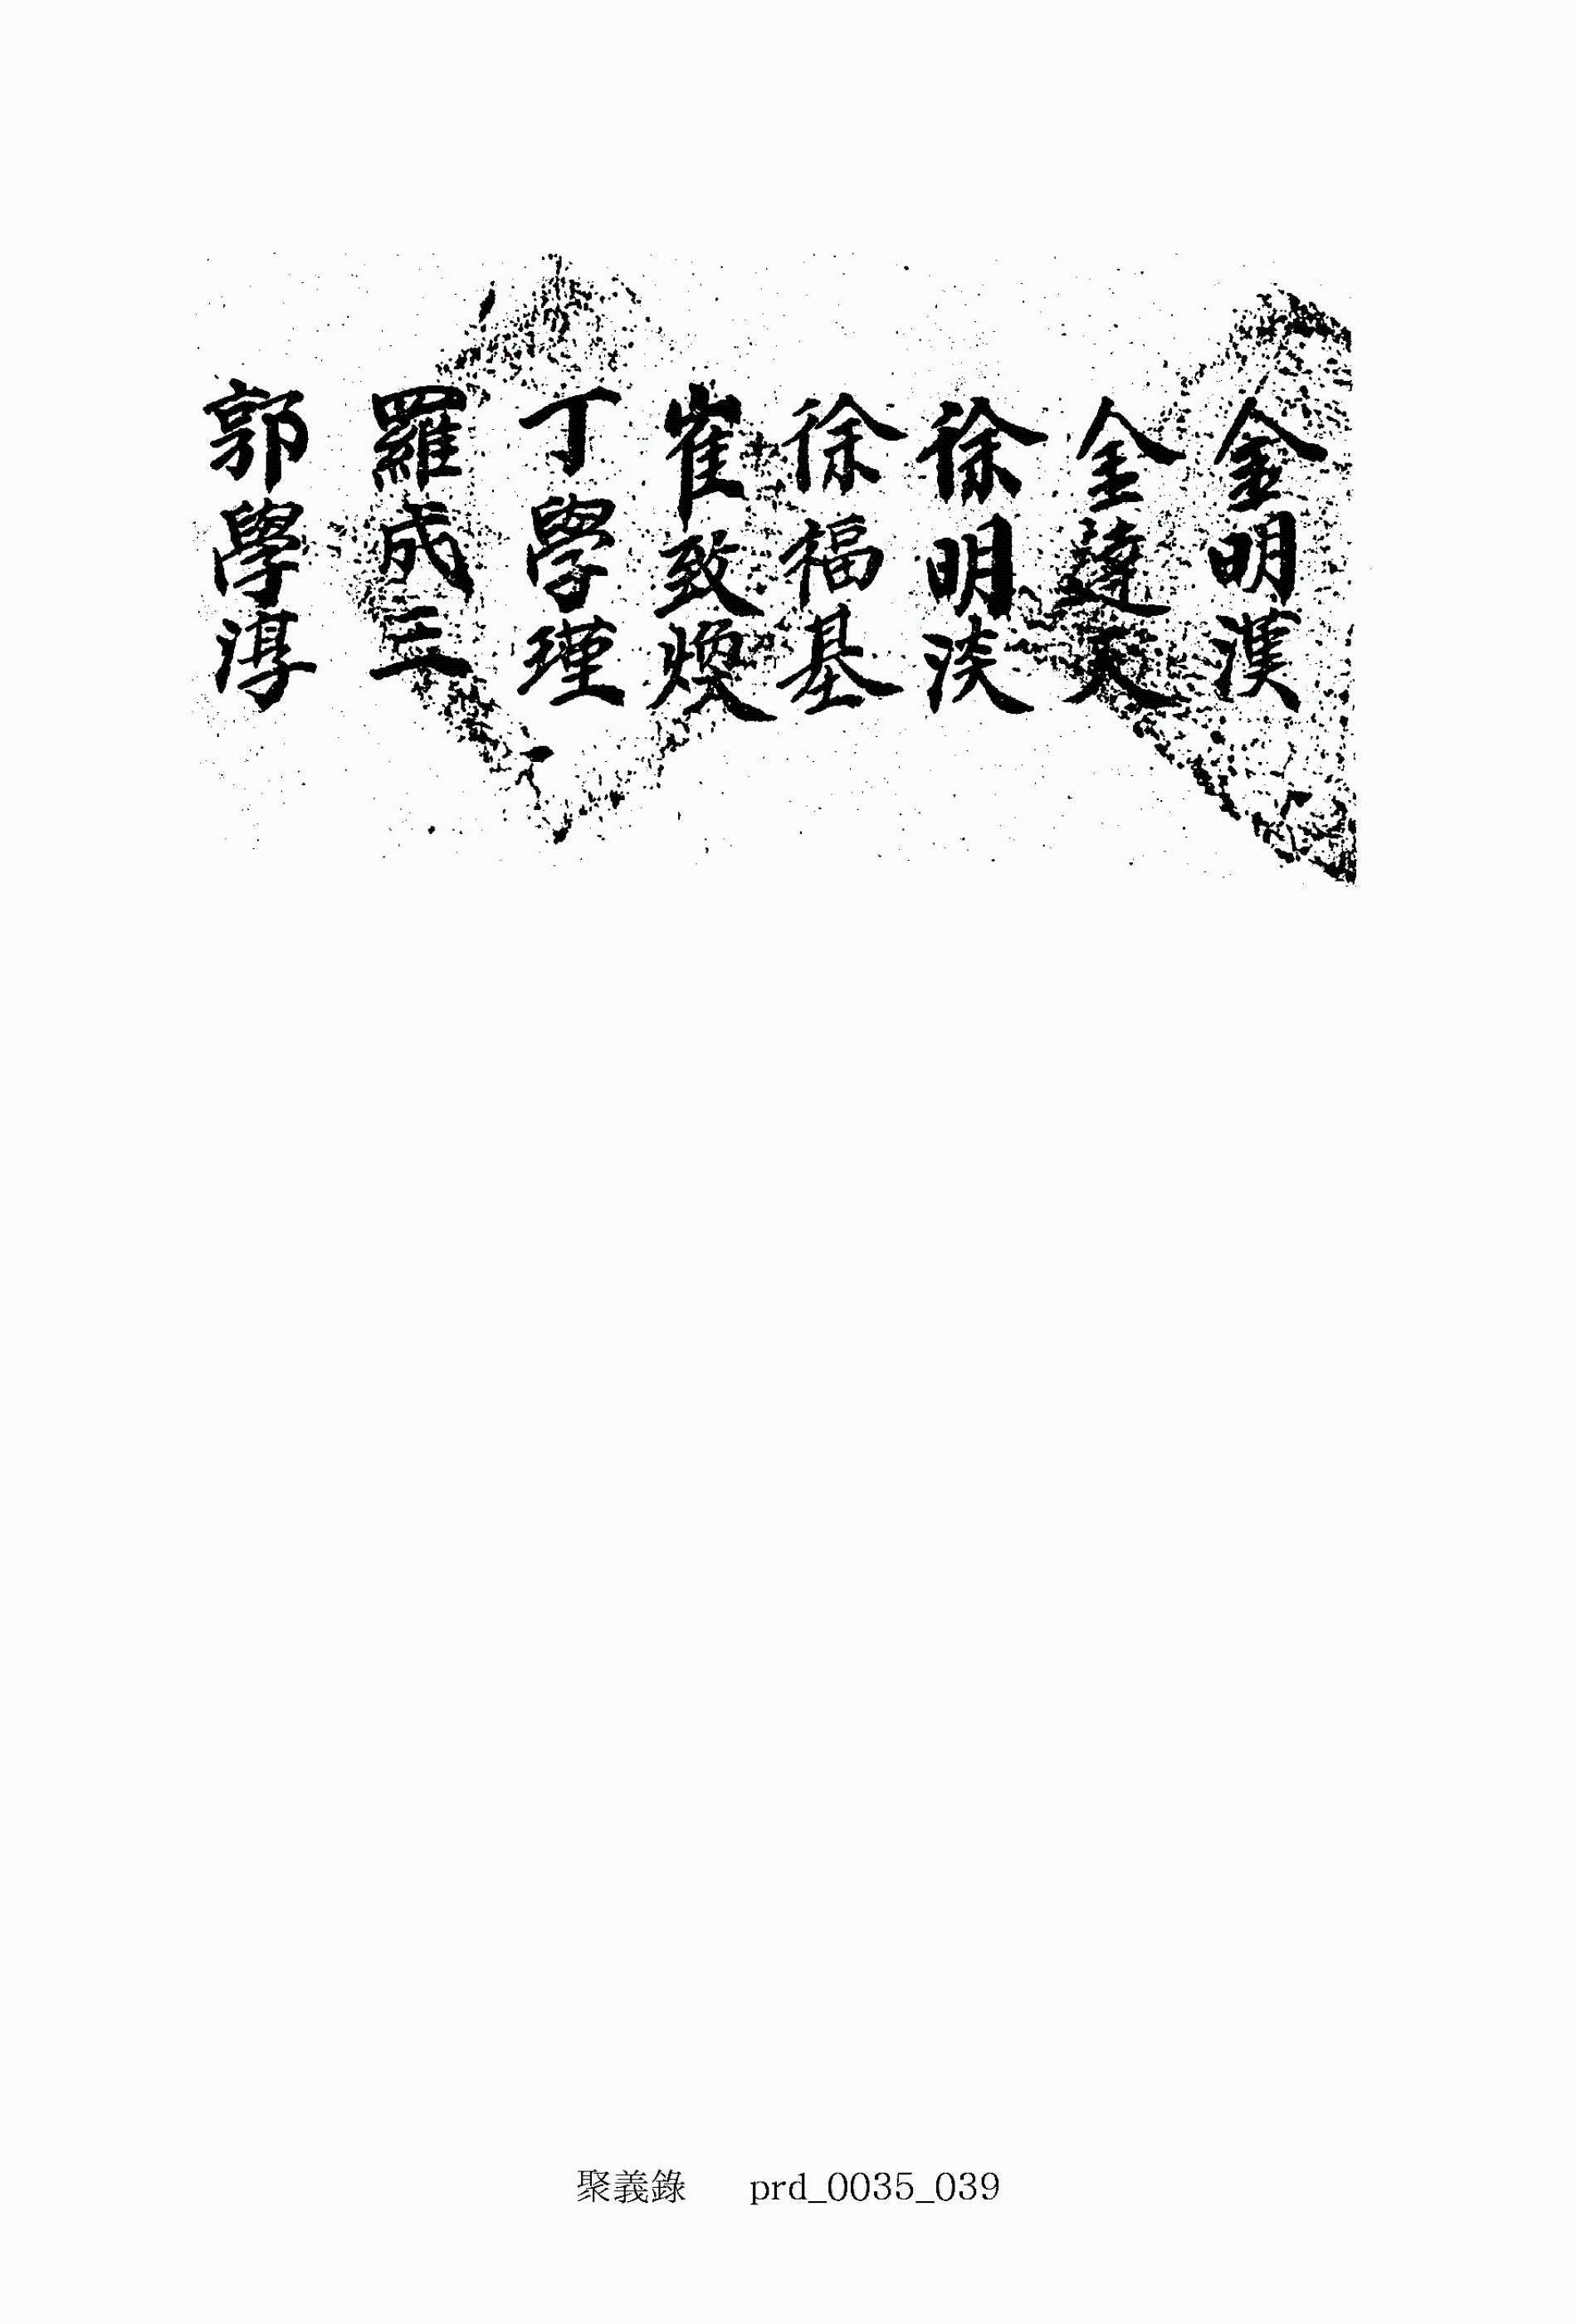 金明漢
金達天
徐明淡
徐福基
崔致煥
丁學瑾
羅成三
郭學淳
聚義錄 prd_0035_039